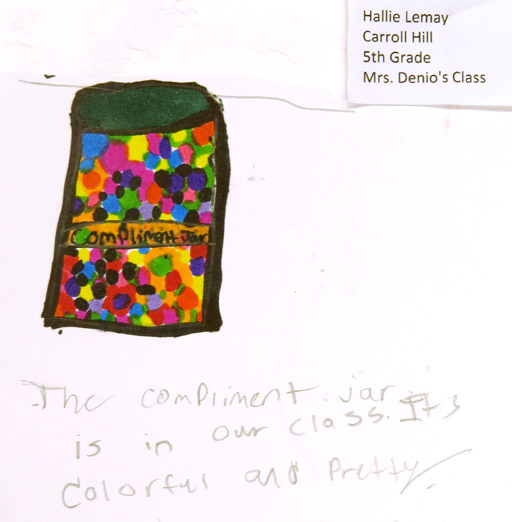 Hallie Lemay
Carroll Hill
5th Grade
Mrs. Denio's Class
Compliment Jar
The compliment jar
is in our class. It's
Colorful and Pretty.